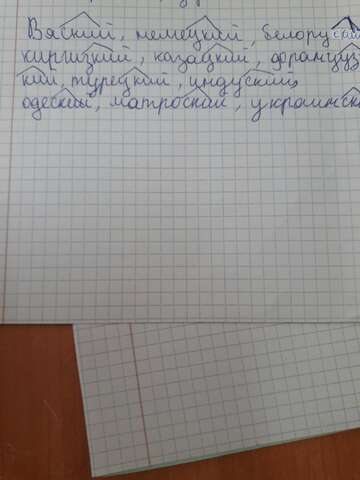 Вяский, немецкий, белорусский
киргизкий, казацкий, француз
кий, турецкий, индуский,
одеский, матроский, украинск